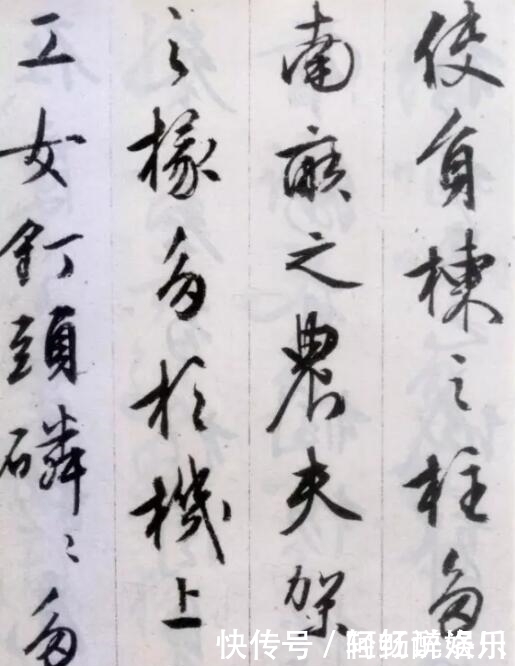 使負棟之柱多
南畝之農夫架
之椽多於機上
工女釘頭磷々多
快传号 /